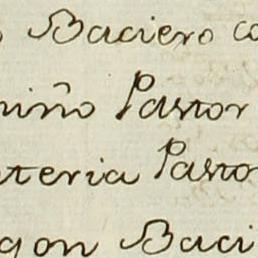 Baciero co
niño Pastor
teria Pasto
gon Baci